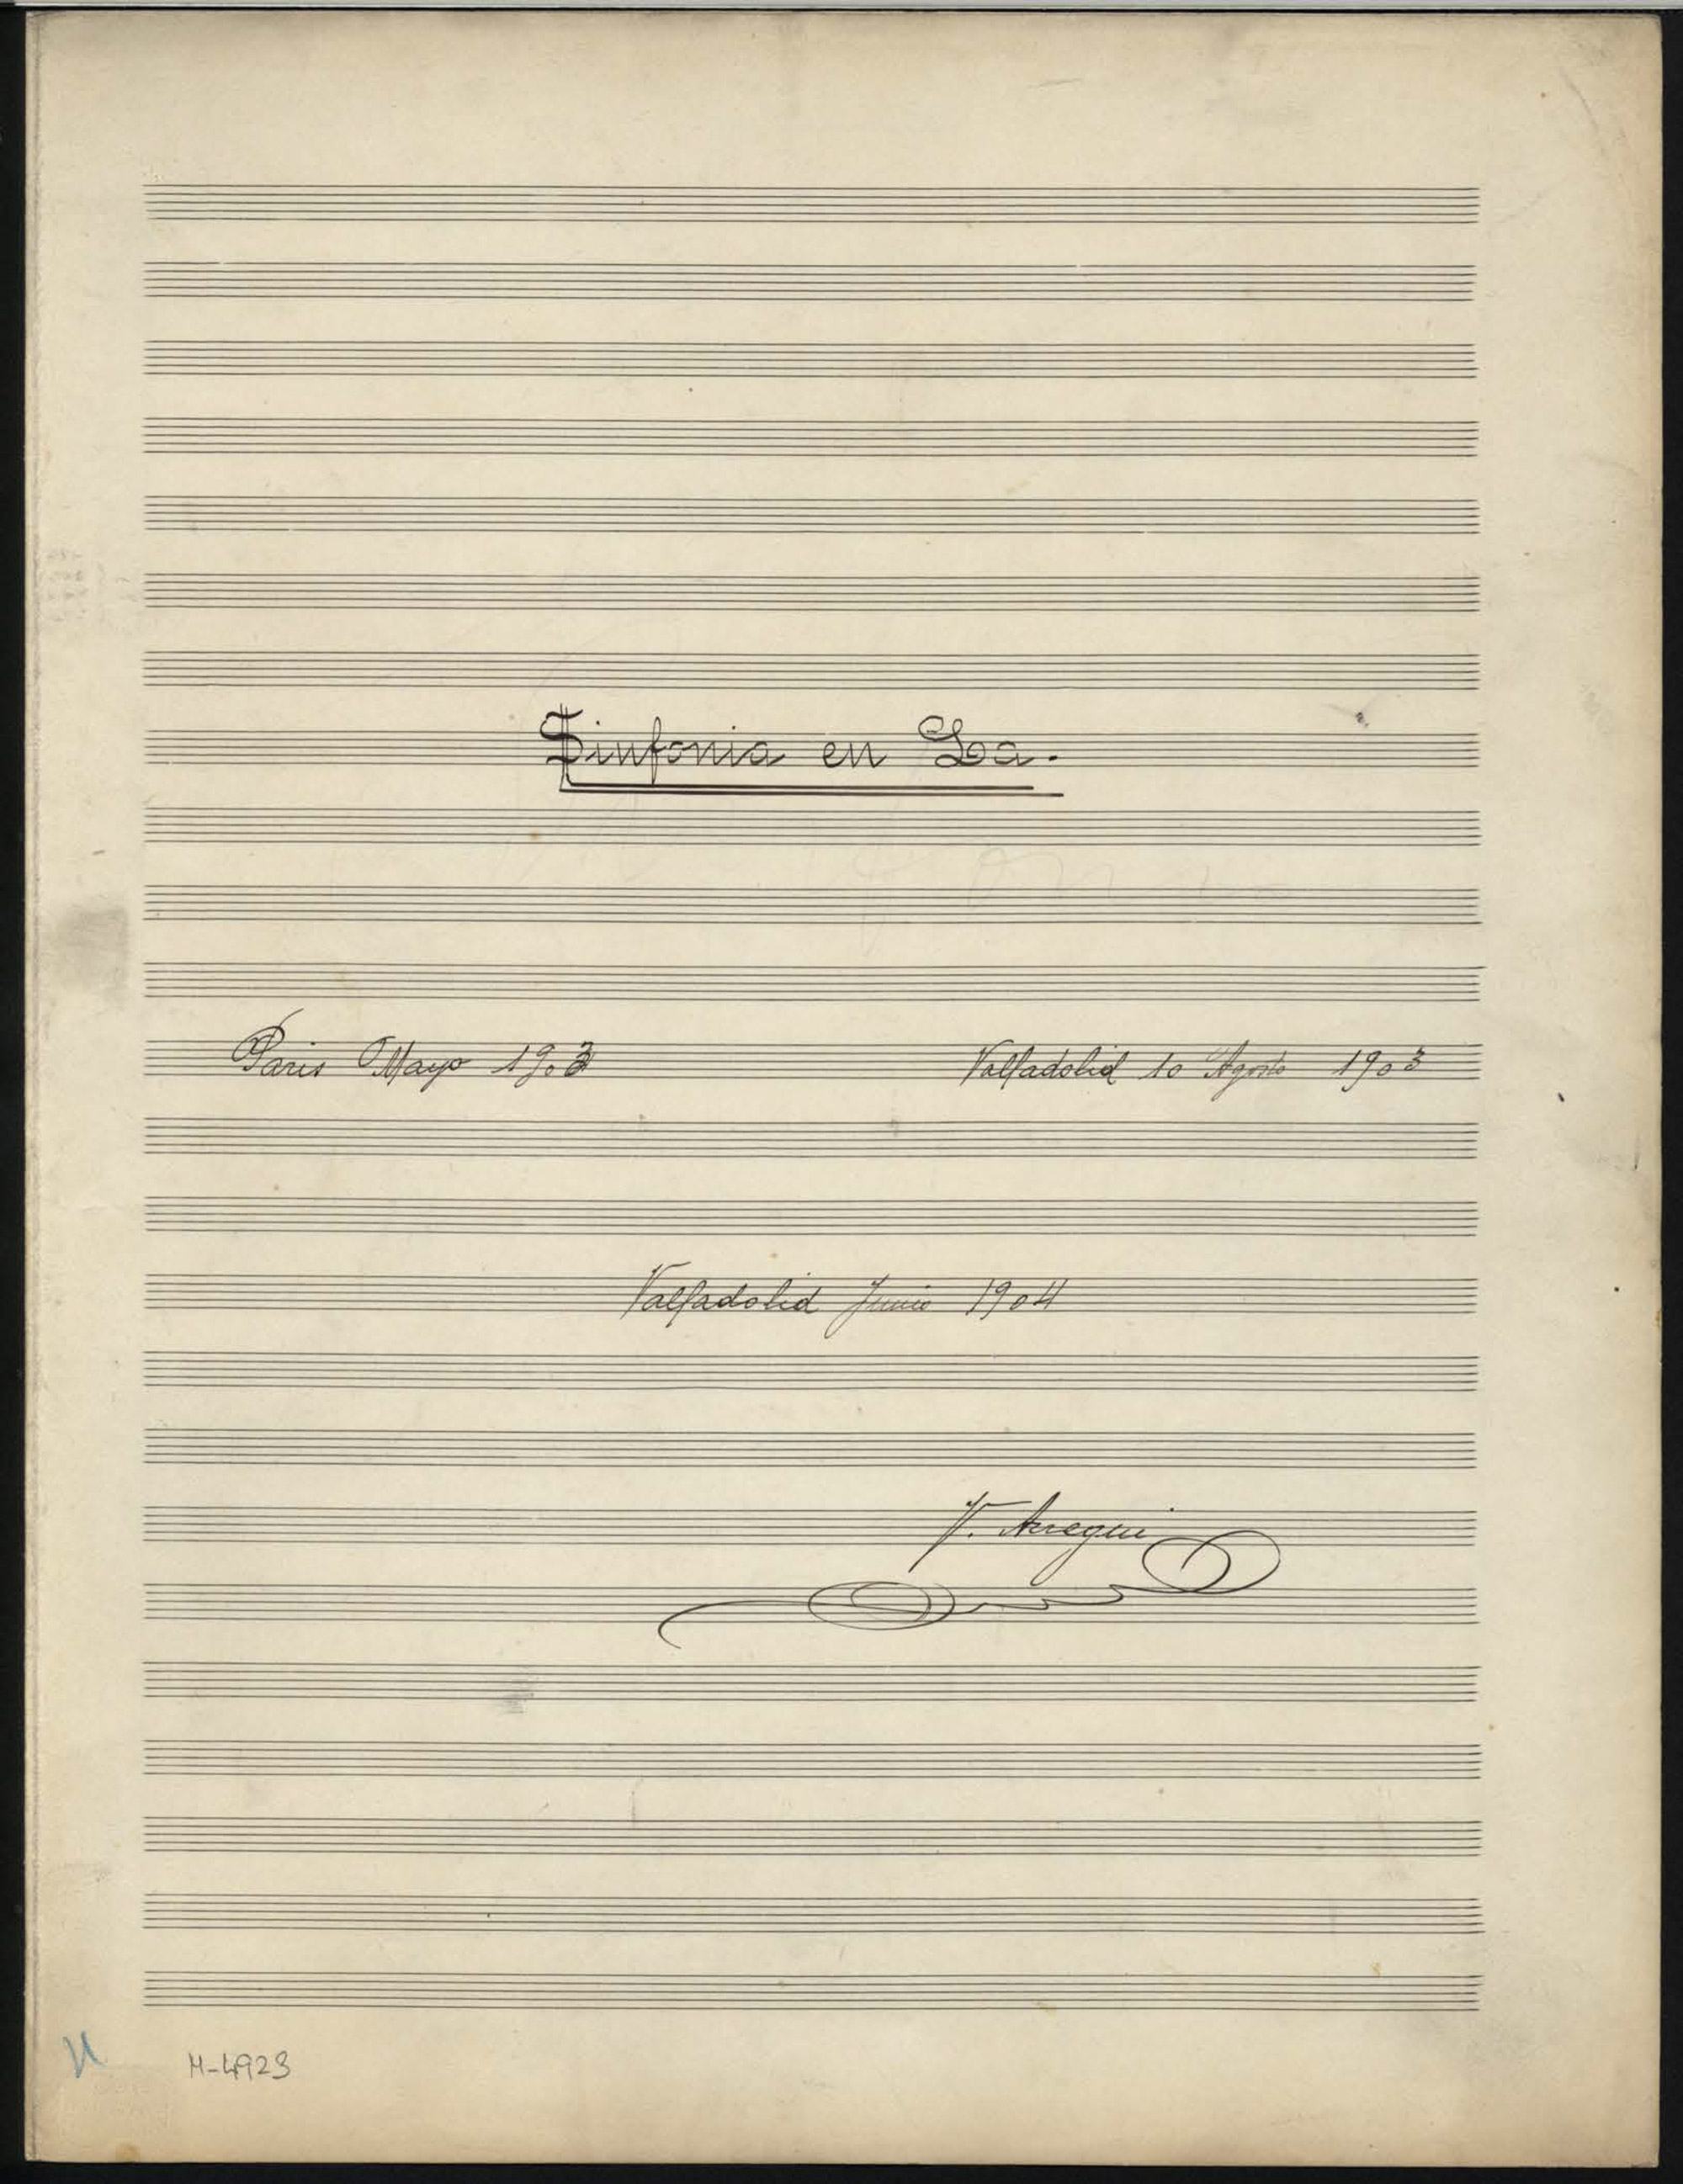 Sinfonia en La.
Paris Mayo 1903 Valladolid 10 Agosto 1903
Valladolid Junio 1904
V. Arregui
M-4923